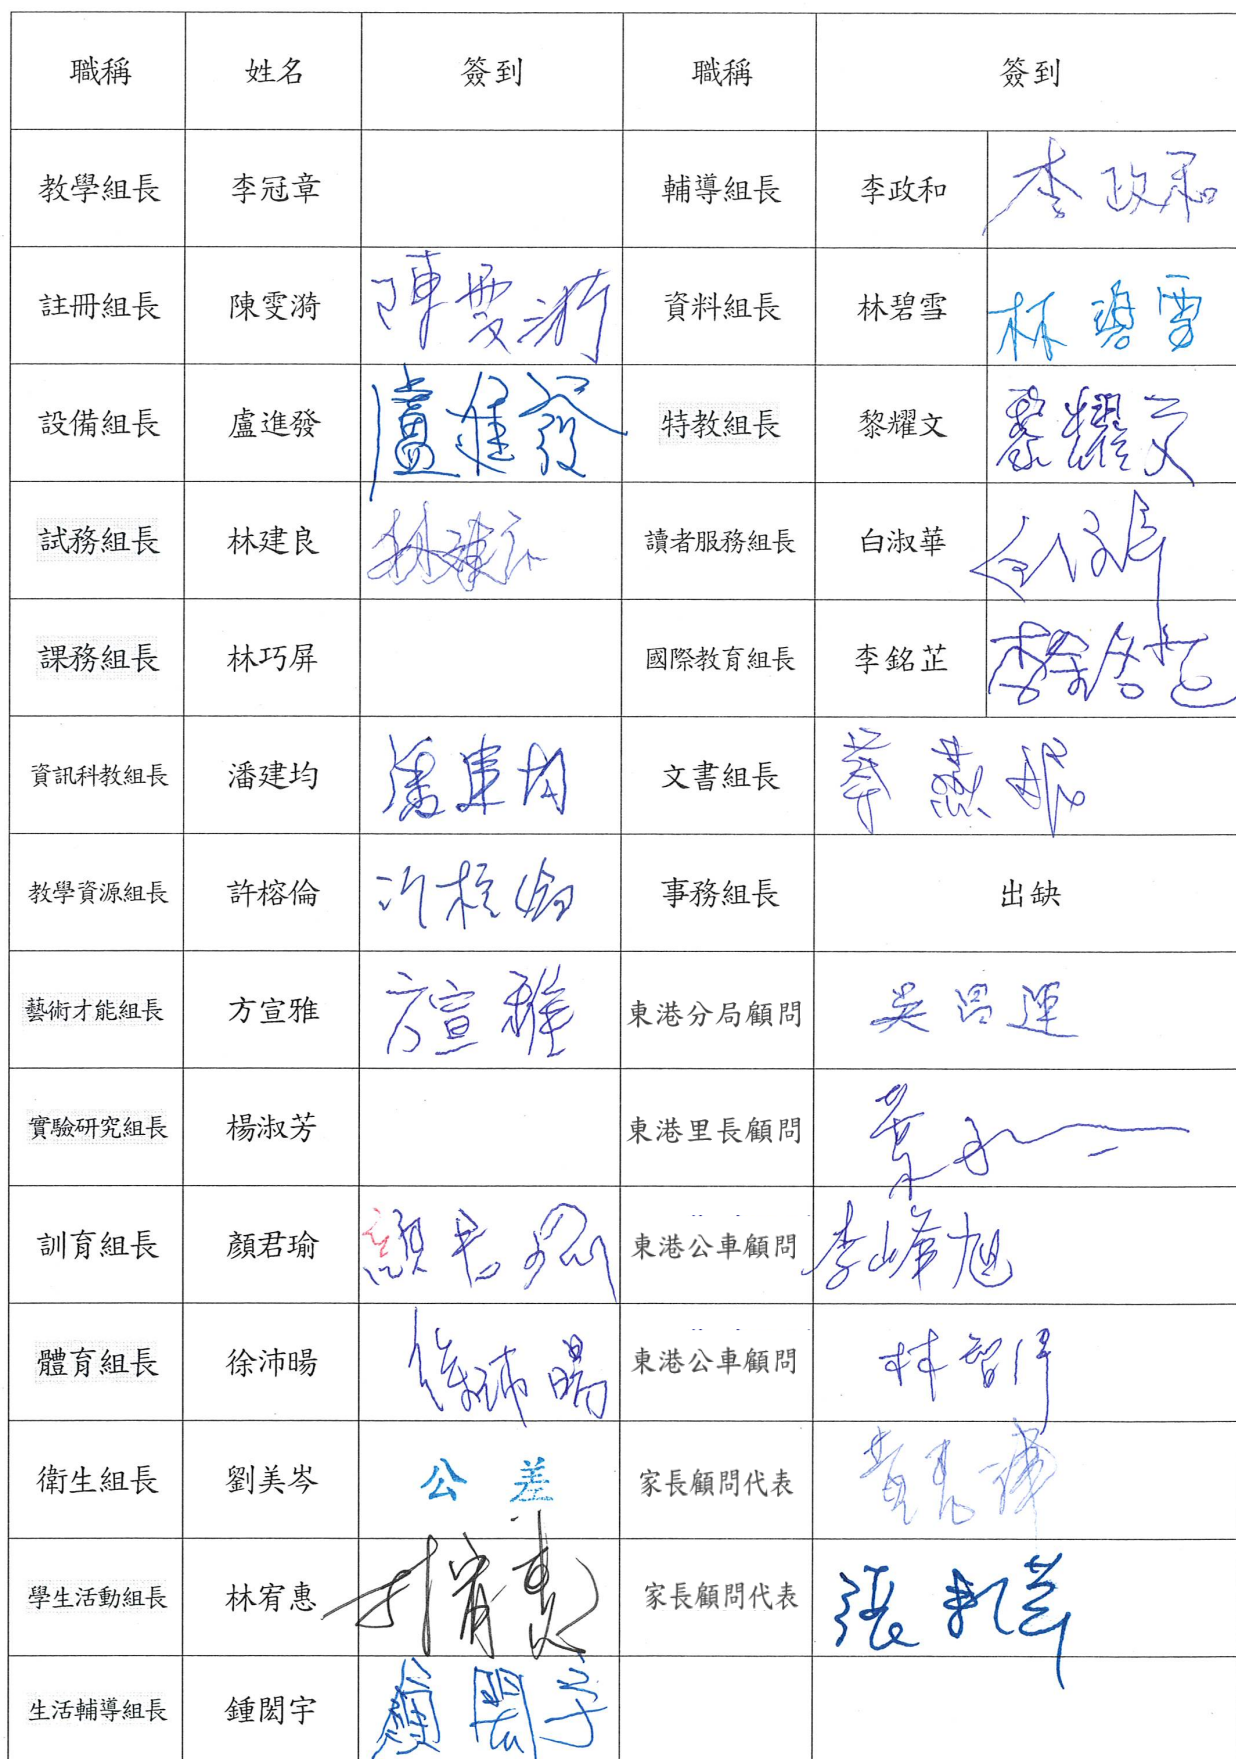 職稱 姓名 簽到 職稱 簽到
教學組長 李冠章 輔導組長 李政和 李政和
註冊組長 陳雯漪 陳雯漪 資料組長 林碧雪 林碧雪
設備組長 盧進發 盧進發 特教組長 黎耀文 黎耀文
試務組長 林建良 林建良 讀者服務組長 白淑華
課務組長 林巧屏 國際教育組長 李銘芷 李銘芷
資訊科教組長 潘建均 潘建均 文書組長
教學資源組長 許榕倫 許榕倫 事務組長 出缺
藝術才能組長 方宣雅 方宣雅 東港分局顧問 吳
實驗研究組長 楊淑芳 東港里長顧問
訓育組長 顏君瑜 顏君瑜 東港公車顧問 李峰旭
體育組長 徐沛暘 徐沛暘 東港公車顧問 林智
衛生組長 劉美岑 公差 家長顧問代表 黃
學生活動組長 林宥惠 林宥惠 家長顧問代表 張
生活輔導組長 鍾閎宇